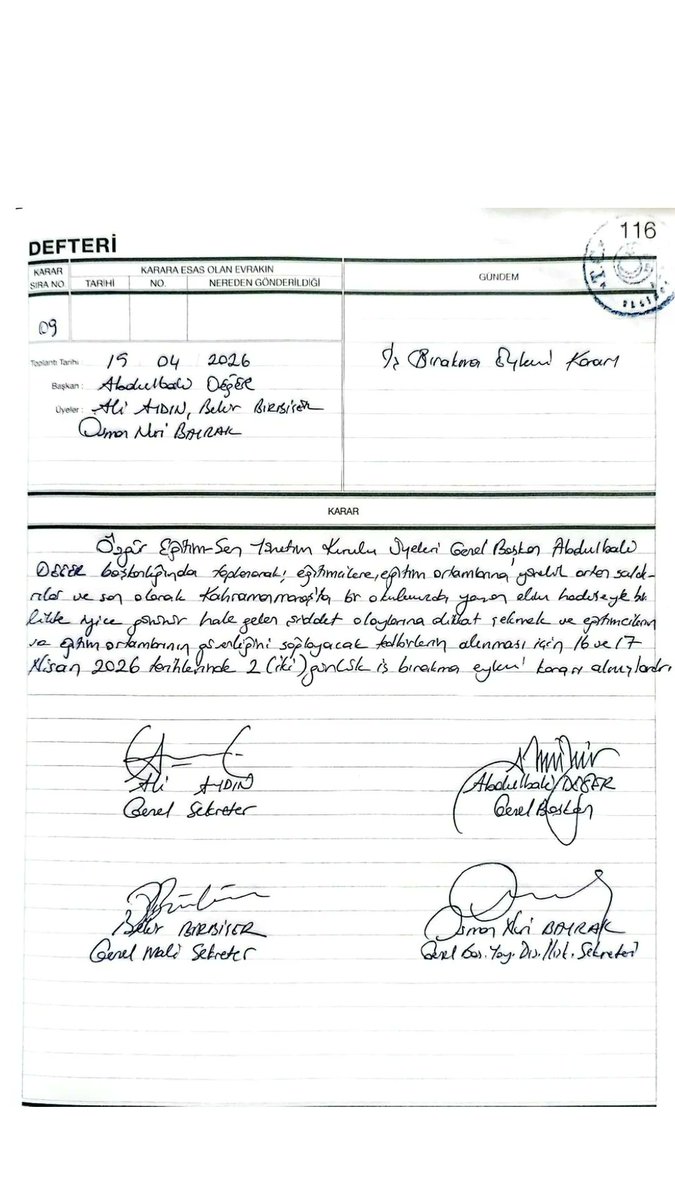 DEFTERİ
116
KARAR SIRA NO.
KARARA ESAS OLAN EVRAKIN
TARİHİ NO. NEREDEN GÖNDERİLDİĞİ
GÜNDEM
09
Toplantı Tarihi : 15 04 2026
Başkan : Abdulbaki DEĞER
Üyeler : Ali AYDIN, Bekir BİRBİÇER
Osman Nuri BAYRAK
İş Bırakma Eylemi Kararı
KARAR
Özgür Eğitim-Sen Yönetim Kurulu Üyeleri Genel Başkan Abdulbaki
DEĞER başkanlığında toplanarak; eğitimcilere, eğitim ortamlarına yönelik artan saldı-
rılar ve son olarak Kahramanmaraş'ta bir okulumuzda yaşanan elim hadiseyle bir-
likte iyice görünür hale gelen şiddet olaylarına dikkat çekmek ve eğitimcilerin
ve eğitim ortamlarının güvenliğini sağlayacak tedbirlerin alınması için 16 ve 17
Nisan 2026 tarihlerinde 2 (iki) günlük iş bırakma eylemi kararı almışlardır.
Ali AYDIN
Genel Sekreter
Abdulbaki DEĞER
Genel Başkan
Bekir BİRBİÇER
Genel Mali Sekreter
Osman Nuri BAYRAK
Genel Bas. Yay. Dış. İlişk. Sekreteri